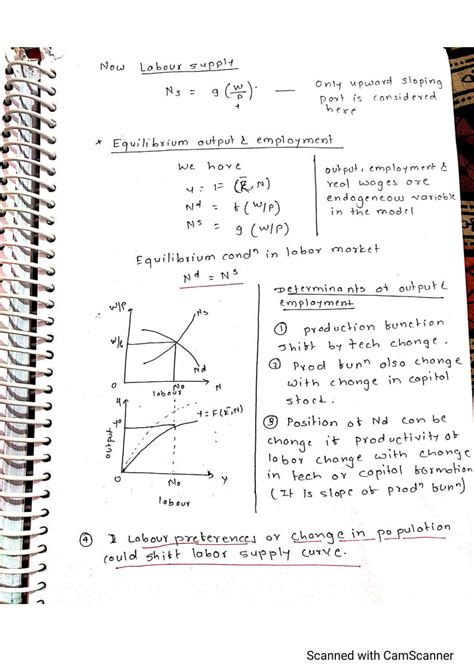 Now Labour supply
Ns = g (W/P).
Only upward sloping
part is considered
here
* Equilibrium output & employment
We have
y = F (K̄, N)
Nd = f (W/P)
Ns = g (W/P)
output, employment &
real wages are
endogeneous variable
in the model
Equilibrium condn in labor market
Nd = Ns
W/P
Ns
W/P
Nd
O
No
N
labour
y
yo
y = F(K̄, N)
output
O
No
y
labour
Determinants of output &
employment
① production function
shift by tech change.
② Prod funn also change
with change in capital
stock.
③ Position of Nd can be
change if productivity of
labor change with change
in tech or capital formation
(It is slope of prodn funn)
④ Labour preferences or change in population
could shift labor supply curve.
Scanned with CamScanner